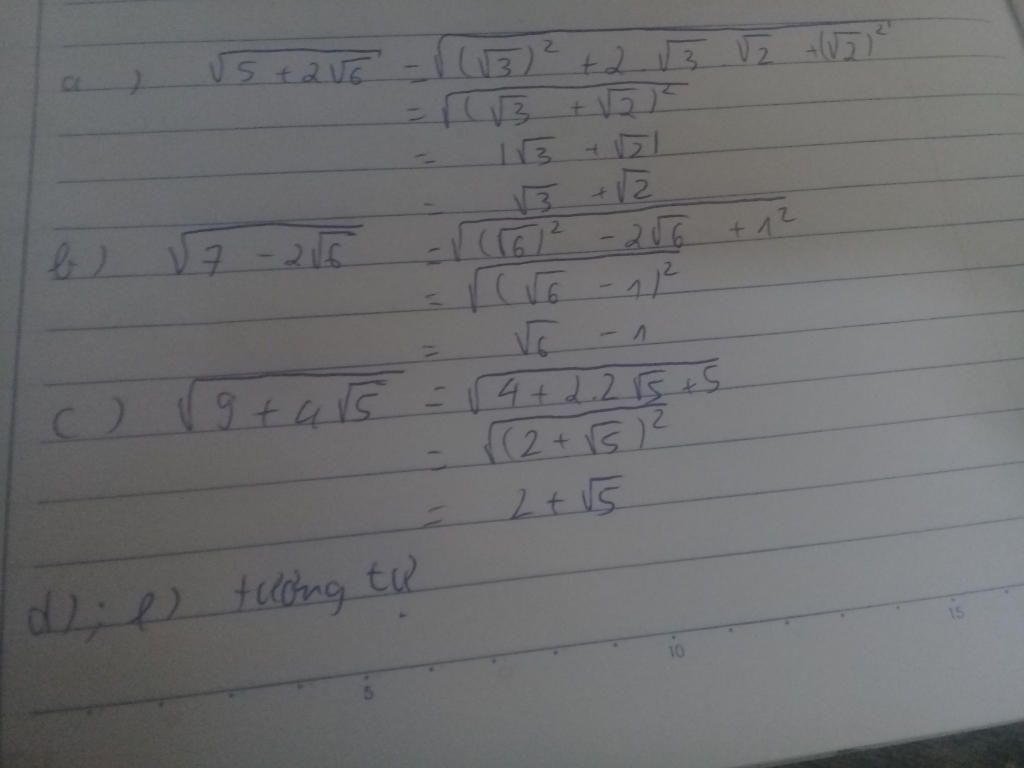 a) √(5 + 2√6) = √((√3)² + 2 √3 √2 + (√2)²)
= √((√3 + √2)²)
= |√3 + √2|
= √3 + √2
b) √(7 - 2√6) = √((√6)² - 2√6 + 1²)
= √((√6 - 1)²)
= √6 - 1
c) √(9 + 4√5) = √(4 + 2.2√5 + 5)
= √((2 + √5)²)
= 2 + √5
d); e) tương tự
5 10 15